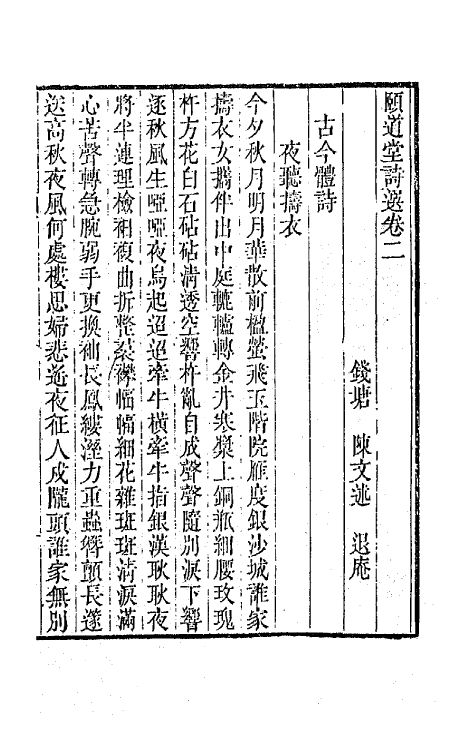 頤道堂詩選卷二
錢塘 陳文述 退庵
古今體詩
夜聽擣衣
今夕秋月明月華散前楹螢飛玉階院雁度銀沙城誰家
擣衣女攜伴出中庭轆轤轉金井寒漿上銅瓶細腰玫瑰
杵方花白石砧砧清透空響杵亂自成聲聲隨別淚下響
逐秋風生啞啞夜烏起迢迢牽牛橫牽牛指銀漢耿耿夜
將半連理檢裀複曲折整裂襟幅幅細花雜斑斑清淚滿
心苦聲轉急腕弱手更換袖長鳳縷溼力重蟲簪顫長遂
送高秋夜風何處樓思婦悲遙夜征人戍隴頭誰家無別